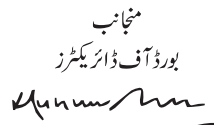 منجانب
بورڈ آف ڈائریکٹرز